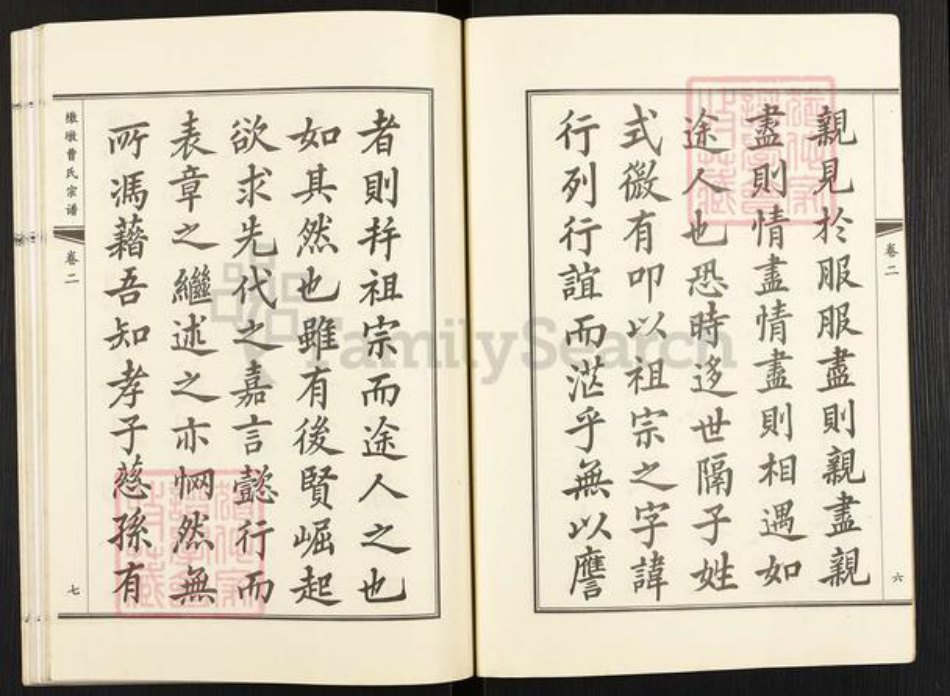 親見於服服盡則親盡親
盡則情盡情盡則相遇如
途人也恐時迻世隔子姓
式微有叩以祖宗之字諱
行列行誼而茫乎無以譍
卷二
六
者則并祖宗而途人之也
如其然也雖有後賢崛起
欲求先代之嘉言懿行而
表章之繼述之亦惘然無
所馮藉吾知孝子慈孫有
墩曹氏宗谱
卷二
七
FamilySearch